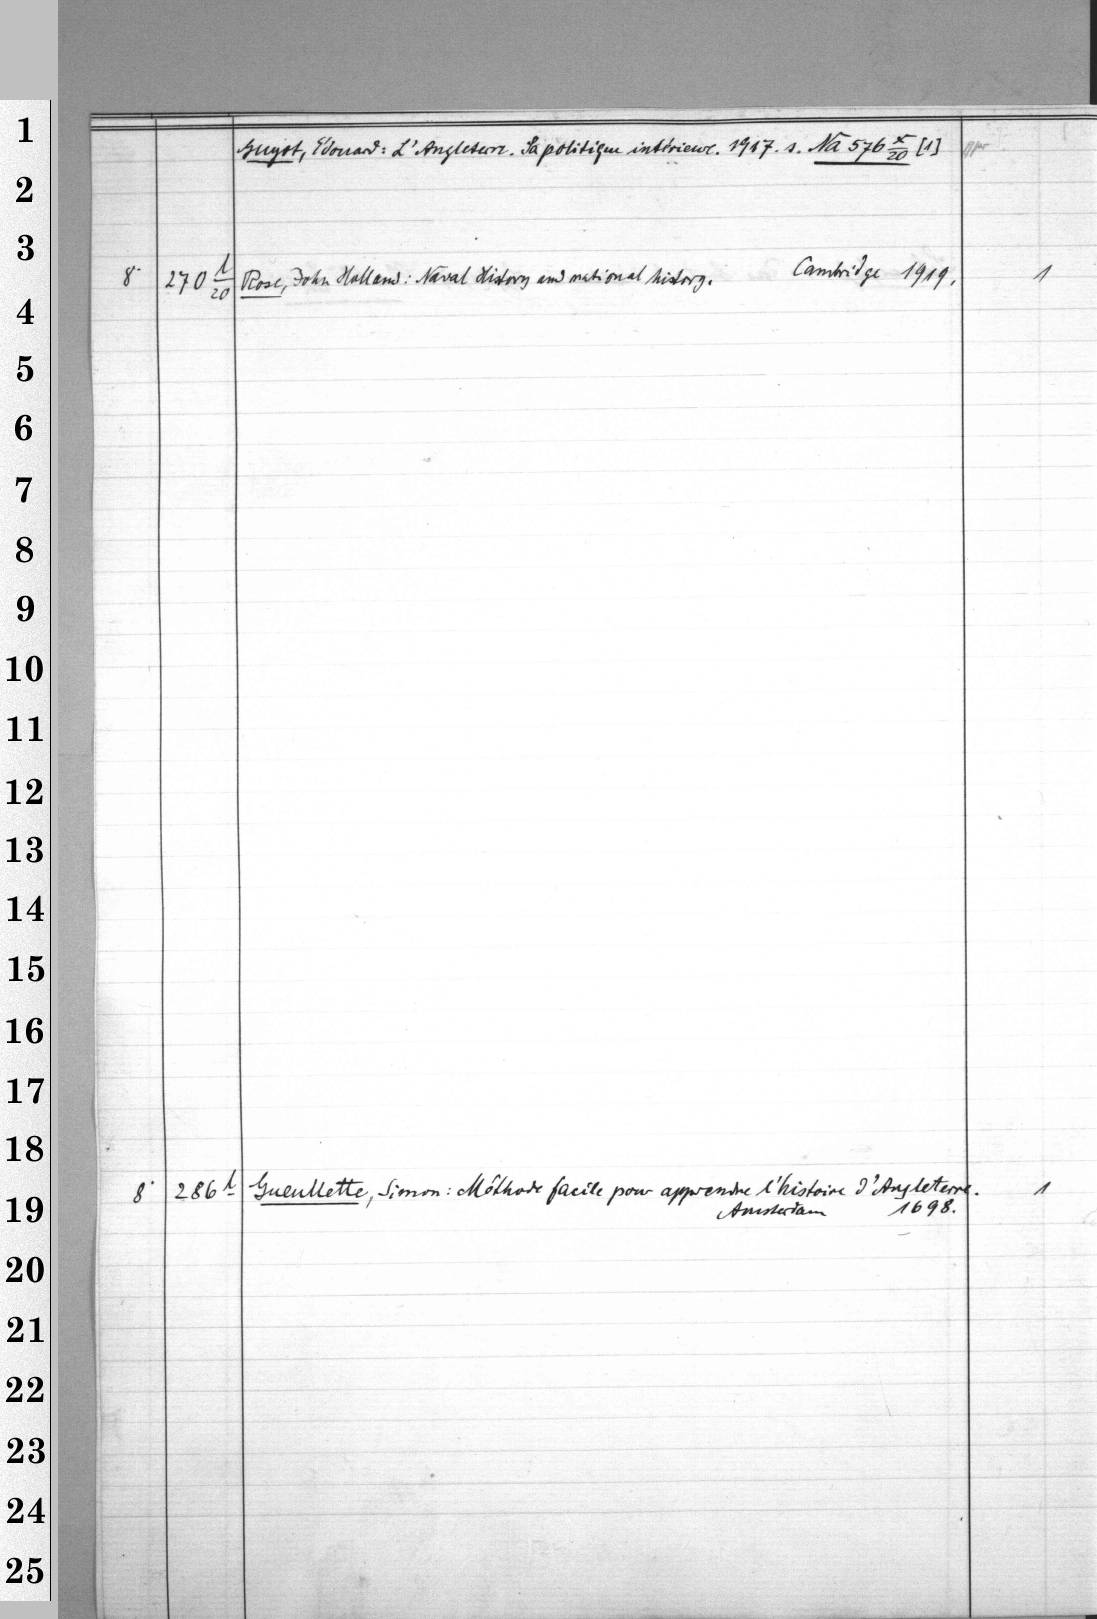 1
Guyot, Édouard: L'Angleterre. Sa politique intérieure. 1917. s. Na 576 x/20 [1]
2
3
8° 270 l/20 Rose, John Holland: Naval History and national history. Cambridge 1919. 1
4
5
6
7
8
9
10
11
12
13
14
15
16
17
18
8° 286 l Gueullette, Simon: Méthode facile pour apprendre l'histoire d'Angleterre. 1
19
Amsterdam 1698.
20
21
22
23
24
25